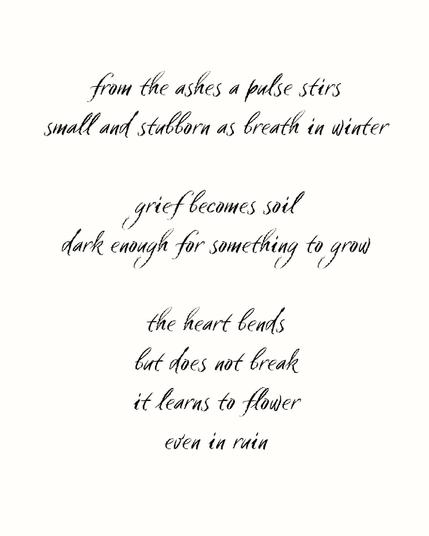 from the ashes a pulse stirs
small and stubborn as breath in winter
grief becomes soil
dark enough for something to grow
the heart bends
but does not break
it learns to flower
even in ruin